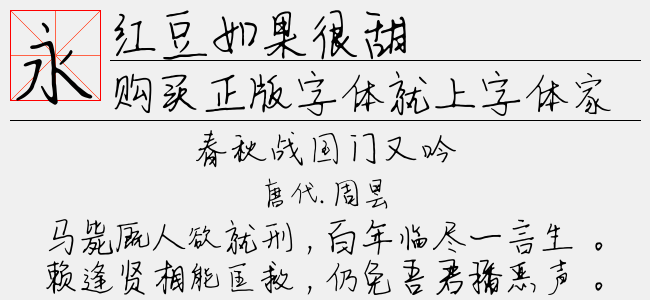 永
红豆如果很甜
购买正版字体就上字体家
春秋战国门又吟
唐代.周昙
马毙厩人欲就刑,百年临尽一言生。
赖逢贤相能匡救,仍免吾君播恶声。